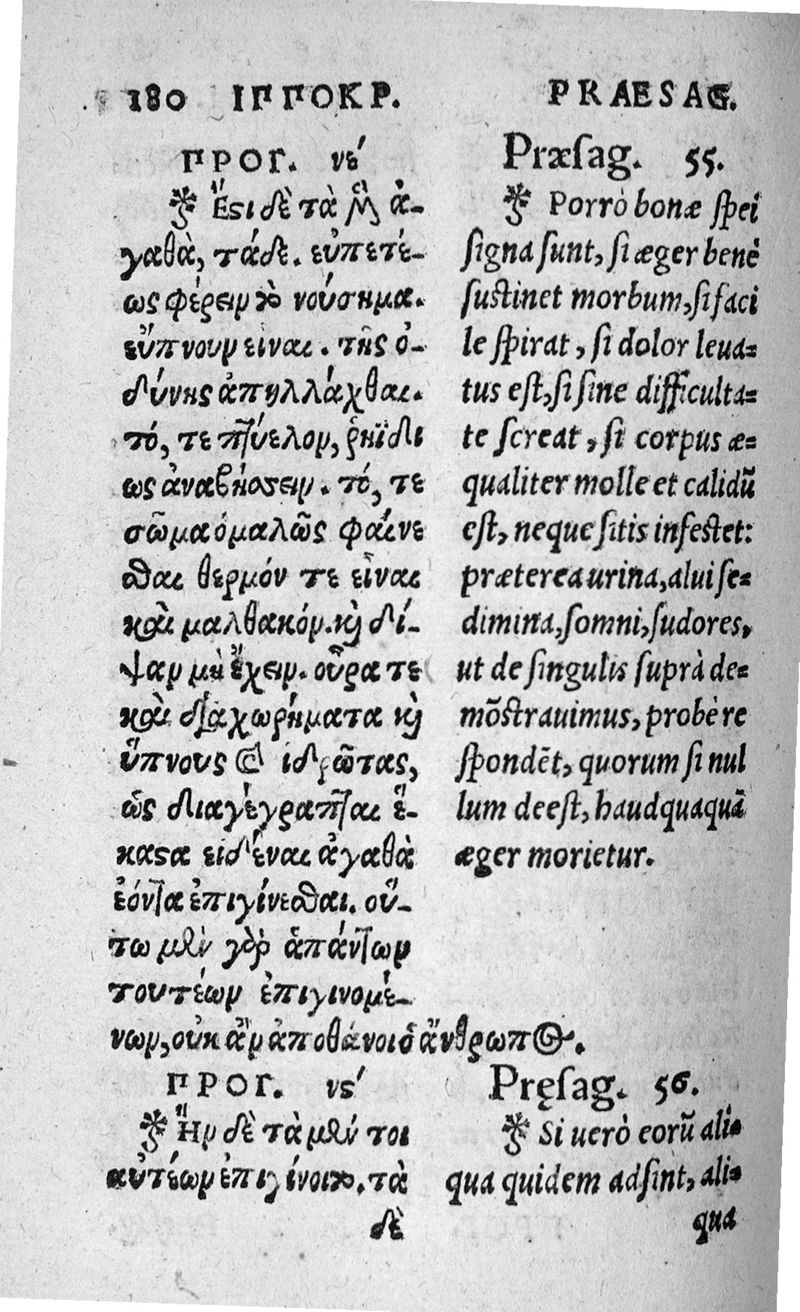 180 ΙΠΠΟΚΡ.
ΠΡΟΓ. νε΄
Ἔϛι δὲ τὰ μὲν ἀ-
γαθὰ, τάδε. εὐπετέ-
ως φέρειν τὸ νούσημα.
εὔπνουν εἶναι. τῆς ὀ-
δύνης ἀπηλλάχθαι.
τό, τε πτύελον, ῥηϊδί
ως ἀναβήσσειν. τό, τε
σῶμα ὁμαλῶς φαίνε
σθαι θερμόν τε εἶναι
καὶ μαλθακόν. καὶ δί-
ψαν μὴ ἔχειν. οὖρα τε
καὶ διαχωρήματα καὶ
ὕπνους καὶ ἱδρῶτας,
ὡς διαγέγραπται ἕ-
καϛα εἰδέναι ἀγαθὰ
ἐόντα ἐπιγίνεσθαι. οὕ-
τω μὲν γὰρ ἁπάντων
τουτέων ἐπιγινομέ-
νων, οὐκ ἂν ἀποθάνοι ὁ ἄνθρωπος.
ΠΡΟΓ. νϛ΄
Ἢν δὲ τὰ μέν τοι
αὐτέων ἐπιγίνοιτο, τὰ
δὲ
PRAESAG.
Præsag. 55.
Porrò bonæ spei
signa sunt, si æger benè
sustinet morbum, si faci
le spirat, si dolor leua=
tus est, si sine difficulta=
te screat, si corpus æ=
qualiter molle et calidũ
est, neque sitis infestet:
præterea urina, alui se=
dimina, somni, sudores,
ut de singulis suprà de=
mõstrauimus, probè re
spondẽt, quorum si nul
lum deest, haudquaquã
æger morietur.
Pręsag. 56.
Si uerò eorũ ali=
qua quidem adsint, ali=
qua